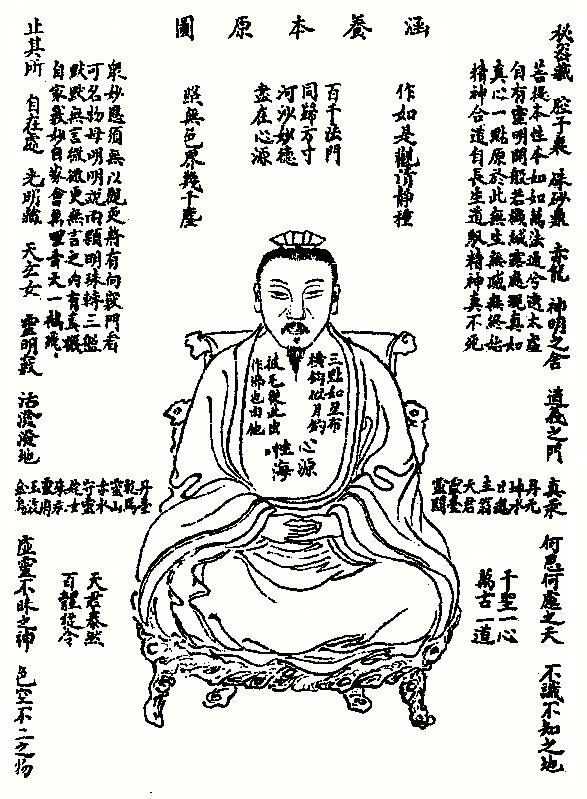 涵養本原圖
秘密藏 腔子裏 硃砂鼎 赤龍 神明之舍 道義之門 真汞 何思何慮之天 不識不知之地
菩提本性本如如萬法通兮透太虛
自有靈明開般若機緘露處現真如
真心一點原於此無生無滅無終始
精神合道自長生道馭精神真不死
作如是觀清靜種
百千法門
同歸方寸
河沙妙德
盡在心源
照無色界幾千塵
眾妙應須無以觀更將有向竅門看
可名物母明明說兩顆明珠轉盤
默默無言微微更無言之内有真機
自家義妙自家會萬里青天一鶴飛
止其所 自在處 光明藏 天玄女 靈明竅 活潑潑地 虛靈不昧之神 色空不二之物
三點如星布
橫鈎似月
披毛從此出
作佛也由他
心源
性海
丹元
神水
日魂
主翁
天君
靈臺
靈關
丹臺
乾馬
靈山
赤水
守靈
姹女
玉液
金烏
千聖一心
萬古一道
天君泰然
百體從令